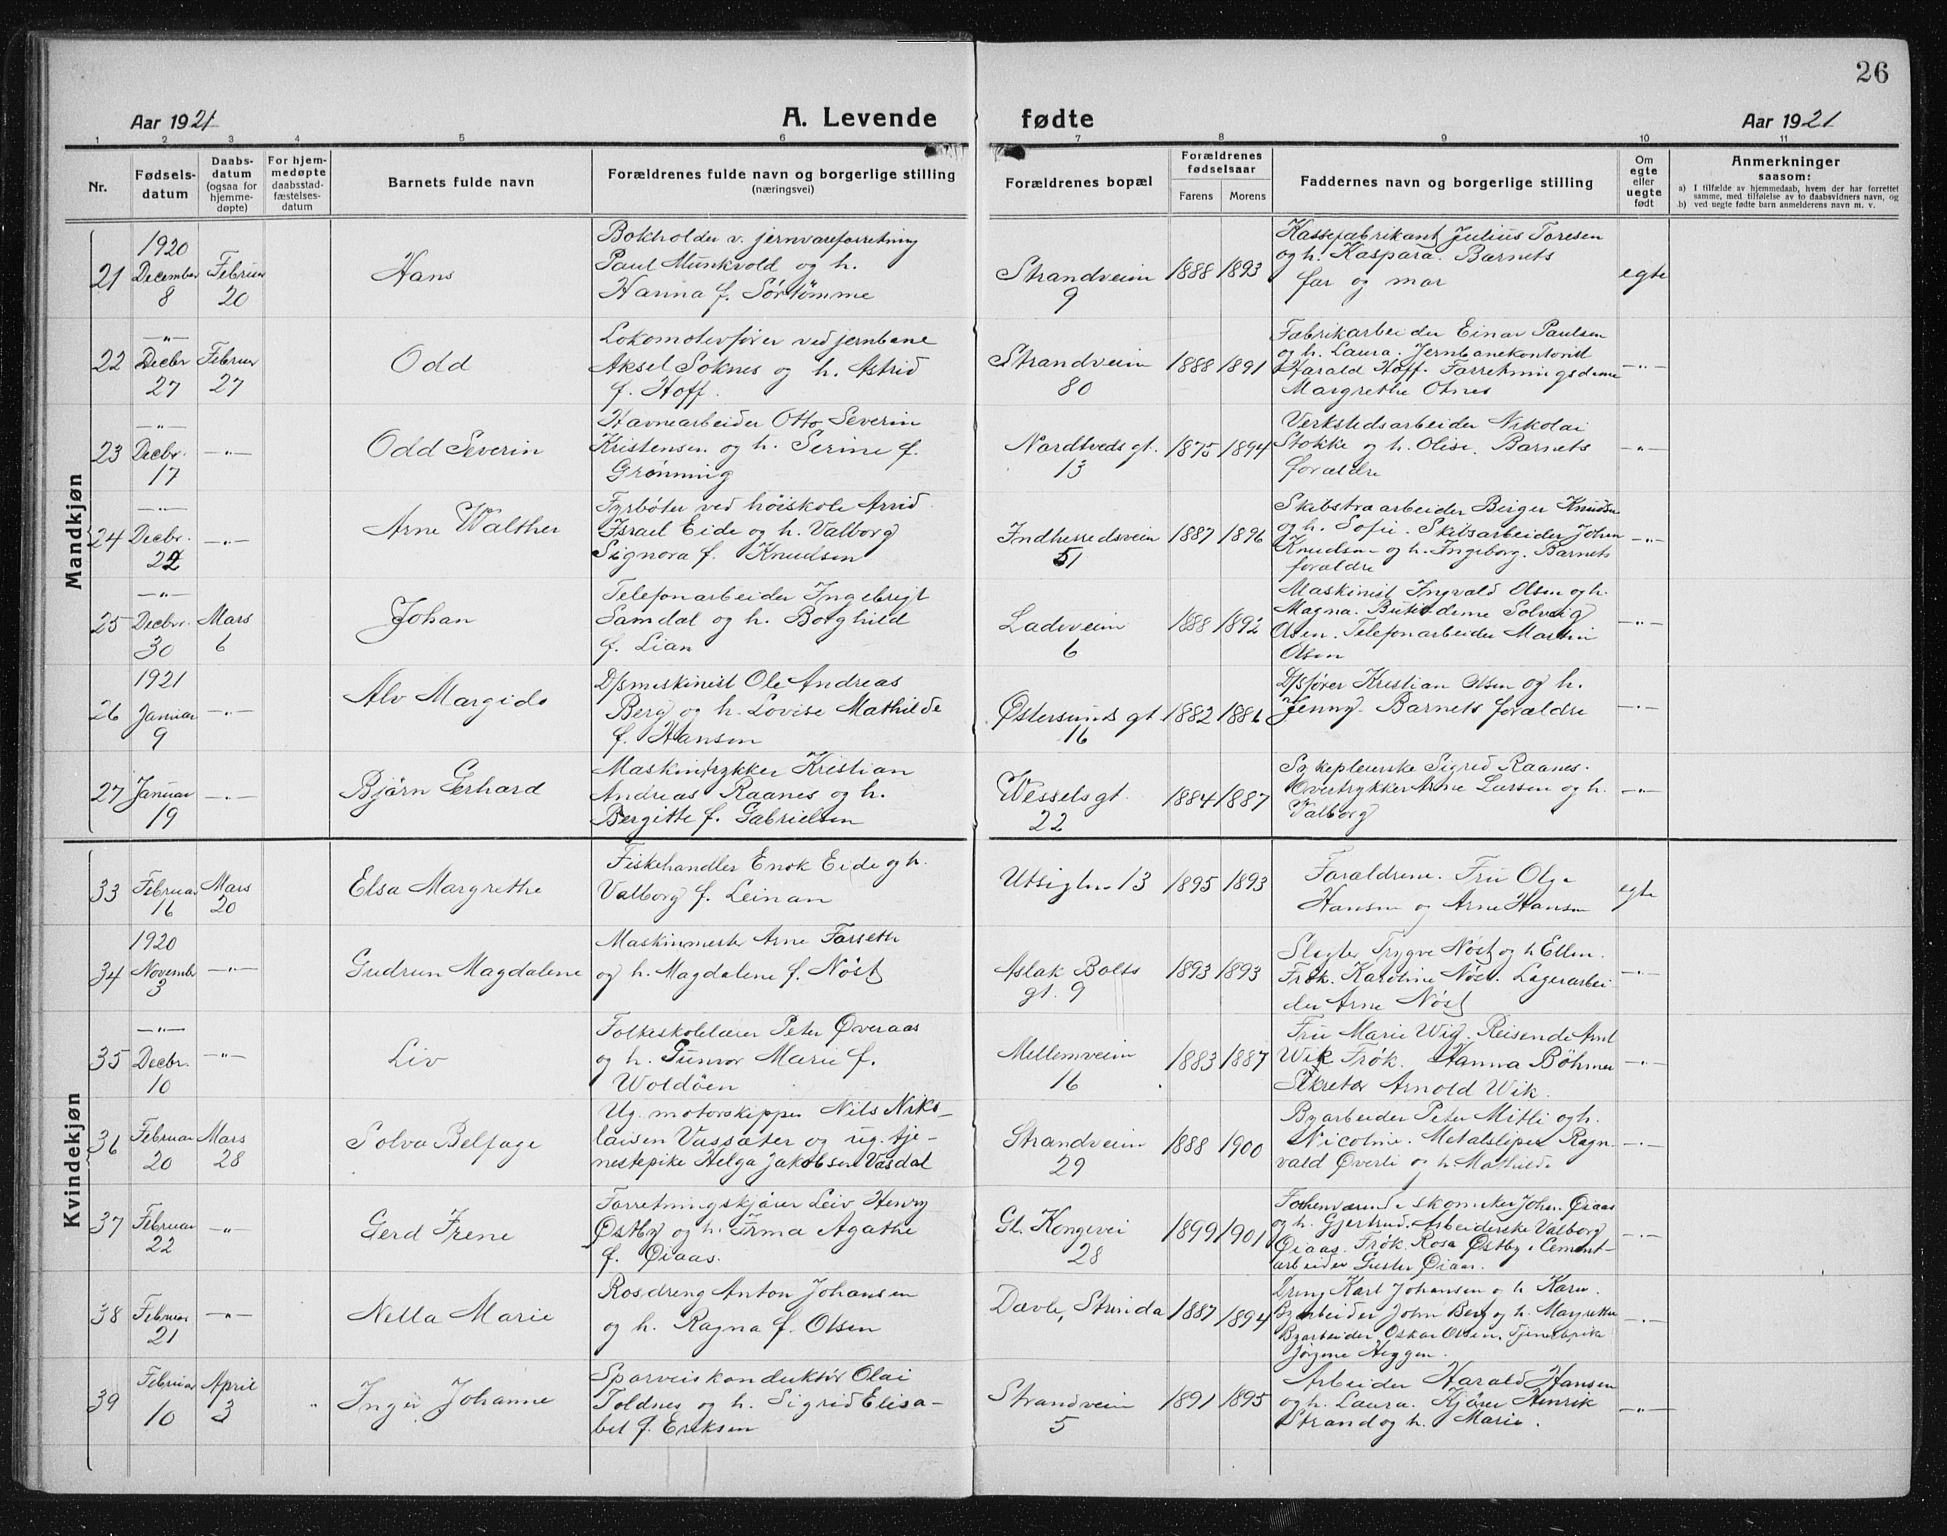 26
Aar 1921 A. Levende fødte Aar 1921
1 2 3 4 5 6 7 8 9 10 11
Nr.
Fødsels-
datum
Daabs-
datum
(ogsaa for
hjemme-
døpte)
For hjem-
medøpte
daabsstad-
fæstelses-
datum
Barnets fulde navn
Forældrenes fulde navn og borgerlige stilling
(næringsvei)
Forældrenes bopæl
Forældrenes
fødselsaar
Farens Morens
Faddernes navn og borgerlige stilling
Om
egte
eller
uegte
født
Anmerkninger
saasom:
a) I tilfælde av hjemmedaab, hvem der har forrettet
samme, med tilføielse av to daabsvidners navn, og
b) ved uegte fødte barn anmelderens navn m. v.
Mandkjøn
21
1920
December
8
Februar
20
Hans
Bokholder v. jernvareforretning
Paul Munkvold og h.
Hanna f. Sørtømme
Strandveien
9
1888 1893
Kassefabrikant Julius Toresen
og h. Kaspara. Barnets
far og mor
egte
22
—„—
Decbr
27
Februar
27
Odd
Lokomotivfører ved jernbane
Aksel Soknes og h. Astrid
f. Hoff.
Strandveien
80
1888 1891
Fabrikarbeider Einar Paulsen
og h. Laura. Jernbanekontorist
Harald Hoff. Forretningsdame
Margrethe Otnes
—„—
23
—„—
Decbr.
17
—„—
Odd Severin
Havnearbeider Otto Severin
Kristensen og h. Serine f.
Grønning
Nordtveds gt.
13
1875 1894
Verkstedsarbeider Nikolai
Stokke og h. Olise. Barnets
forældre
—„—
24
—„—
Decbr.
22
—„—
Arne Walther
Fyrbøter ved høiskole Arvid
Israel Eide og h. Valborg
Signora f. Knudsen
Indherredsveien
51
1887 1896
Skibstraarbeider Birger Knudsen
og h. Sofie. Skibsarbeider Johan
Knudsen og h. Ingeborg. Barnets
forældre
—„—
25
—„—
Decbr.
30
Mars
6
Johan
Telefonarbeider Ingebrigt
Samdal og h. Borghild
f. Lian
Ladeveien
6
1888 1892
Maskinist Ingvald Olsen og h.
Magna. Butikdame Solveig
Olsen. Telefonarbeider Martin
Olsen
—„—
26
1921
Januar
9
—„—
Alv Margido
D/smaskinist Ole Andreas
Berg og h. Lovise Mathilde
f. Hansen
Østersunds gt
16
1882 1886
D/sfører Kristian Olsen og h.
Jenny. Barnets forældre
—„—
27
Januar
19
—„—
Bjørn Gerhard
Maskintrykker Kristian
Andreas Raanes og h.
Bergitte f. Gabrielsen
Wessels gt.
22
1884 1887
Sykepleierske Sigrid Raanes.
Overtrykker Arne Larsen og h.
Valborg
—„—
Kvindekjøn
33
Februar
16
Mars
20
Elsa Margrethe
Fiskehandler Enok Eide og h.
Valborg f. Leinan
Utsigten 13
1895 1893
Forældrene. Fru Olga
Hansen og Arne Hansen
egte
34
1920
November
3
—„—
Gudrun Magdalene
Maskinmester Arne Forseth
og h. Magdalene f. Nøst
Aslak Bolts
gt. 9
1893 1893
Slagter Trygve Nøst og h Ellen.
Frøk. Karoline Nøst. Lagerarbei
der Arne Nøst
—„—
35
—„—
Decbr.
10
—„—
Liv
Folkeskolelærer Peter Øveraas
og h. Gunvor Marie f.
Woldøen
Mellemveien
16
1883 1887
Fru Marie Wig. Reisende Arnt
Wik Frøk. Hanna Böhmer
Sekretær Arnold Wik.
—„—
36
Februar
20
Mars
28
Solva Belfage
Ug. motorskipper Nils Niko-
laisen Vassæter og ug. tje-
nestepike Helga Jakobsen Vasdal
Strandveien
29
1888 1900
Byarbeider Peter Mitli og h.
Nicoline. Metalsliper Ragn
vald Øverli og h. Mathilde
—„—
37
Februar
22
—„—
Gerd Irene
Forretningskjører Leiv Henry
Østby og h. Irma Agathe
f. Øiaas.
Gl. Kongevei
28
1899 1901
Johan Øiaas
og h. Gjertrud. Arbeiderske Valborg
Øiaas. Frøk. Rosa Østby. Cement-
arbeider Gustav Øiaas.
—„—
38
Februar
21
—„—
Nella Marie
Rosdreng Anton Johansen
og h. Ragna f. Olsen
Davle, Strinda
1887 1894
Dreng Karl Johansen og h Karen.
Byarbeider John Berg og h. Margrethe
Byarbeider Oskar Olsen. Tjenestepike
Jørgine Heggen.
—„—
39
Februar
10
April
3
„
Inger Johanne
Sporveiskonduktør Olai
Toldnes og h. Sigrid Elisa-
bet f. Eriksen
Strandveien
5
1891 1895
Arbeider Harald Hansen
og h. Laura. Kjører Henrik
Strand og h. Marie.
—„—